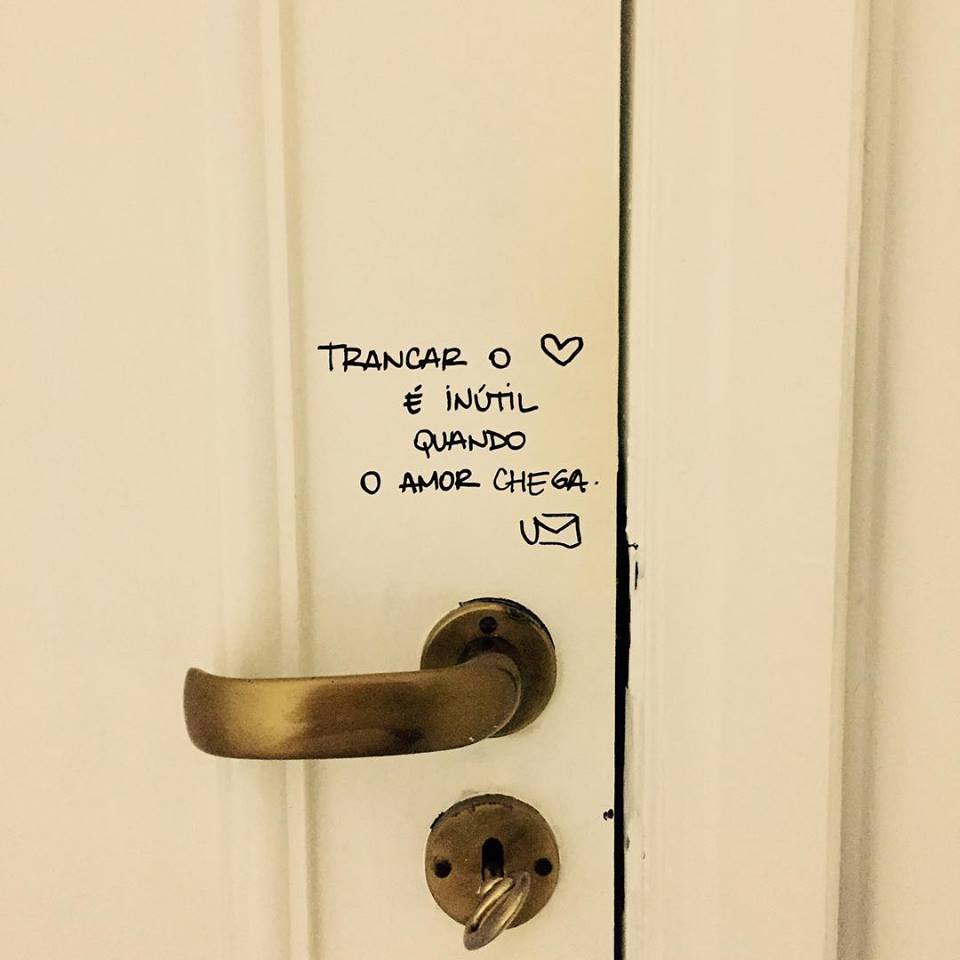 TRANCAR O ♡
É INÚTIL
QUANDO
O AMOR CHEGA.